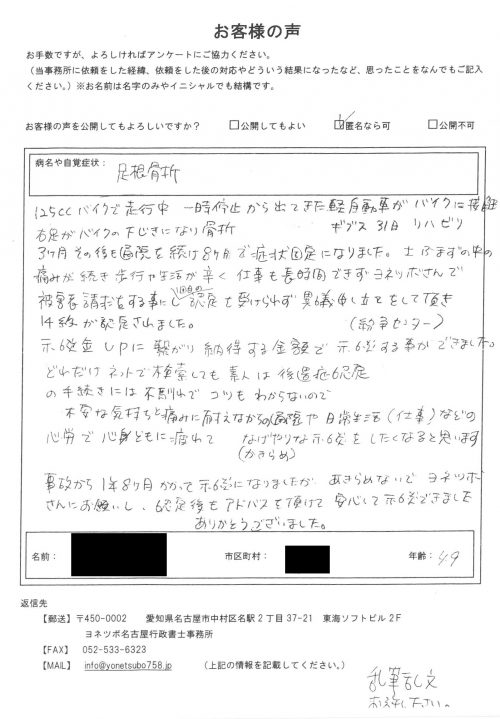 お客様の声
お手数ですが、よろしければアンケートにご協力ください。
（当事務所に依頼をした経緯、依頼をした後の対応やどういう結果になったなど、思ったことをなんでもご記入
ください。）※お名前は名字のみやイニシャルでも結構です。
お客様の声を公開してもよろしいですか？ □公開してもよい ☑匿名なら可 □公開不可
病名や自覚症状： 足根骨折
125ccバイクで走行中 一時停止から出てきた軽自動車がバイクに接触
右足がバイクの下じきになり骨折 ギブス31日 リハビリ
3ヶ月その後も通院を続け8ヶ月で症状固定になりました。土ふまずの中の
痛みが続き歩行や生活が辛く 仕事も長時間できずヨネツボさんで
被害者請求をする事にし1回目の認定も受けられず異議申し立てをして頂き
14級が認定されました。 (紛争センター)
示談金UPに繋がり納得する金額で示談する事ができました。
どれだけネットで検索しても素人は後遺症認定
の手続きには不馴れでコツもわからないので
不安な気持ちと痛みに耐えながらの通院や日常生活(仕事)などの
心労で心身どもに疲れて なげやりな示談をしたくなると思います
(あきらめ)
事故から1年8ヶ月かかって示談になりましたが あきらめないでヨネツボ
さんにお願いし、認定後もアドバスを頂けて安心して示談できました
ありがとうございました。
名前： 市区町村： 年齢： 49
返信先
【郵送】〒450-0002 愛知県名古屋市中村区名駅２丁目37-21 東海ソフトビル２F
ヨネツボ名古屋行政書士事務所
【FAX】 052-533-6323
【MAIL】 info@yonetsubo758.jp （上記の情報を記載してください。）
乱筆乱文
お許し下さい。